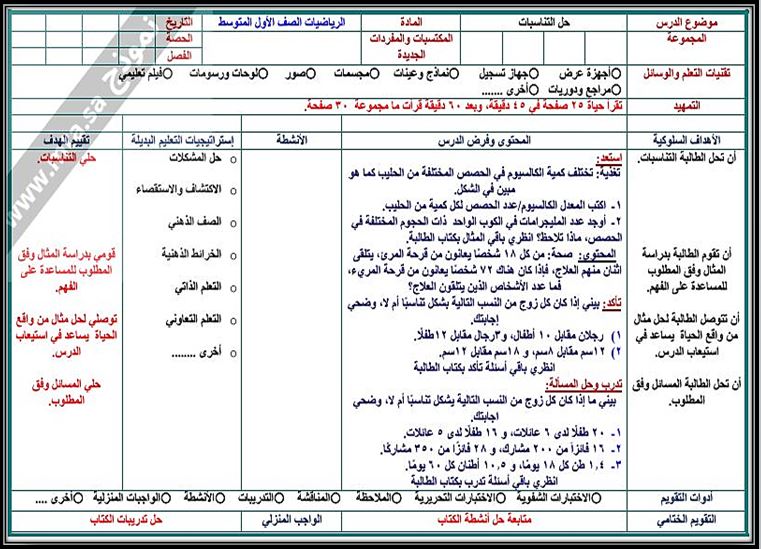 موضوع الدرس
حل التناسبات
المادة
الرياضيات الصف الأول المتوسط
التاريخ
المجموعة
المكتسبات والمفردات الجديدة
الحصة
الفصل
تقنيات التعلم والوسائل
○أجهزة عرض ○جهاز تسجيل ○نماذج وعينات ○مجسمات ○صور ○لوحات ورسومات ○فيلم تعليمي
○مراجع ودوريات ○أخرى .......
التمهيد
تقرأ حياة ٢٥ صفحة في ٤٥ دقيقة، وبعد ٦٠ دقيقة قرأت ما مجموعة ٣٠ صفحة.
الأهداف السلوكية
المحتوى وفرض الدرس
الأنشطة
إستراتيجيات التعليم البديلة
تقييم الهدف
أن تحل الطالبة التناسبات.
أن تقوم الطالبة بدراسة
المثال وفق المطلوب
للمساعدة على الفهم.
أن تتوصل الطالبة لحل مثال
من واقع الحياة يساعد في
استيعاب الدرس.
أن تحل الطالبة المسائل وفق
المطلوب.
استعد:
تغذية: تختلف كمية الكالسيوم في الحصص المختلفة من الحليب كما هو
مبين في الشكل.
١- اكتب المعدل الكالسيوم/عدد الحصص لكل كمية من الحليب.
٢- أوجد عدد المليجرامات في الكوب الواحد ذات الحجوم المختلفة في
الحصص، ماذا تلاحظ؟ انظري باقي المثال بكتاب الطالبة.
المحتوى: صحة: من كل ١٨ شخصًا يعانون من قرحة المرئ، يتلقى
اثنان منهم العلاج، فإذا كان هناك ٧٢ شخصًا يعانون من قرحة المريء،
فما عدد الأشخاص الذين يتلقون العلاج؟
تأكد: بيني إذا كان كل زوج من النسب التالية يشكل تناسبًا أم لا، وضحي
إجابتك.
١) رجلان مقابل ١٠ أطفال، و٣رجال مقابل ١٢طفلًا.
٢) ١٢سم مقابل ٨سم، و ١٨سم مقابل ١٢سم.
انظري باقي أسئلة تأكد بكتاب الطالبة
تدرب وحل المسألة:
بيني ما إذا كان كل زوج من النسب التالية يشكل تناسبًا أم لا، وضحي
اجابتك.
١- ٢٠ طفلًا لدى ٦ عائلات، و ١٦ طفلًا لدى ٥ عائلات.
٢- ١٦ فائزاً من ٢٠٠ مشارك، و ٢٨ فائزًا من ٣٥٠ مشاركًا.
٣- ١,٤ طن كل ١٨ يومًا، و ١٠,٥ أطنان كل ٦٠ يومًا.
انظري باقي أسئلة تدرب بكتاب الطالبة
○ حل المشكلات
○ الاكتشاف والاستقصاء
○ الصف الذهني
○ الخرائط الذهنية
○ التعلم الذاتي
○ التعلم التعاوني
○ أخرى ........
حلي التناسبات.
قومي بدراسة المثال وفق
المطلوب للمساعدة على
الفهم.
توصلي لحل مثال من واقع
الحياة يساعد في استيعاب
الدرس.
حلي المسائل وفق
المطلوب.
أدوات التقويم
○الاختبارات الشفوية ○الاختبارات التحريرية ○الملاحظة ○المناقشة ○التدريبات ○الأنشطة ○الواجبات المنزلية ○أخرى ....
التقويم الختامي
متابعة حل أنشطة الكتاب
الواجب المنزلي
حل تدريبات الكتاب